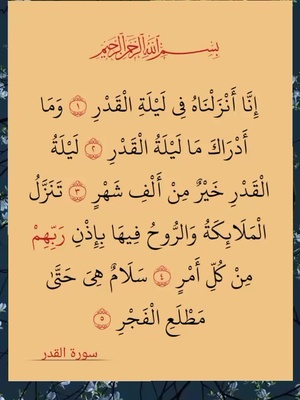 بسم الله الرحمن الرحيم
إِنَّا أَنْزَلْنَاهُ فِى لَيْلَةِ الْقَدْرِ ١ وَمَا
أَدْرَاكَ مَا لَيْلَةُ الْقَدْرِ ٢ لَيْلَةُ
الْقَدْرِ خَيْرٌ مِنْ أَلْفِ شَهْرٍ ٣ تَنَزَّلُ
الْمَلَائِكَةُ وَالرُّوحُ فِيهَا بِإِذْنِ رَبِّهِمْ
مِنْ كُلِّ أَمْرٍ ٤ سَلَامٌ هِىَ حَتَّىٰ
مَطْلَعِ الْفَجْرِ ٥
سورة القدر